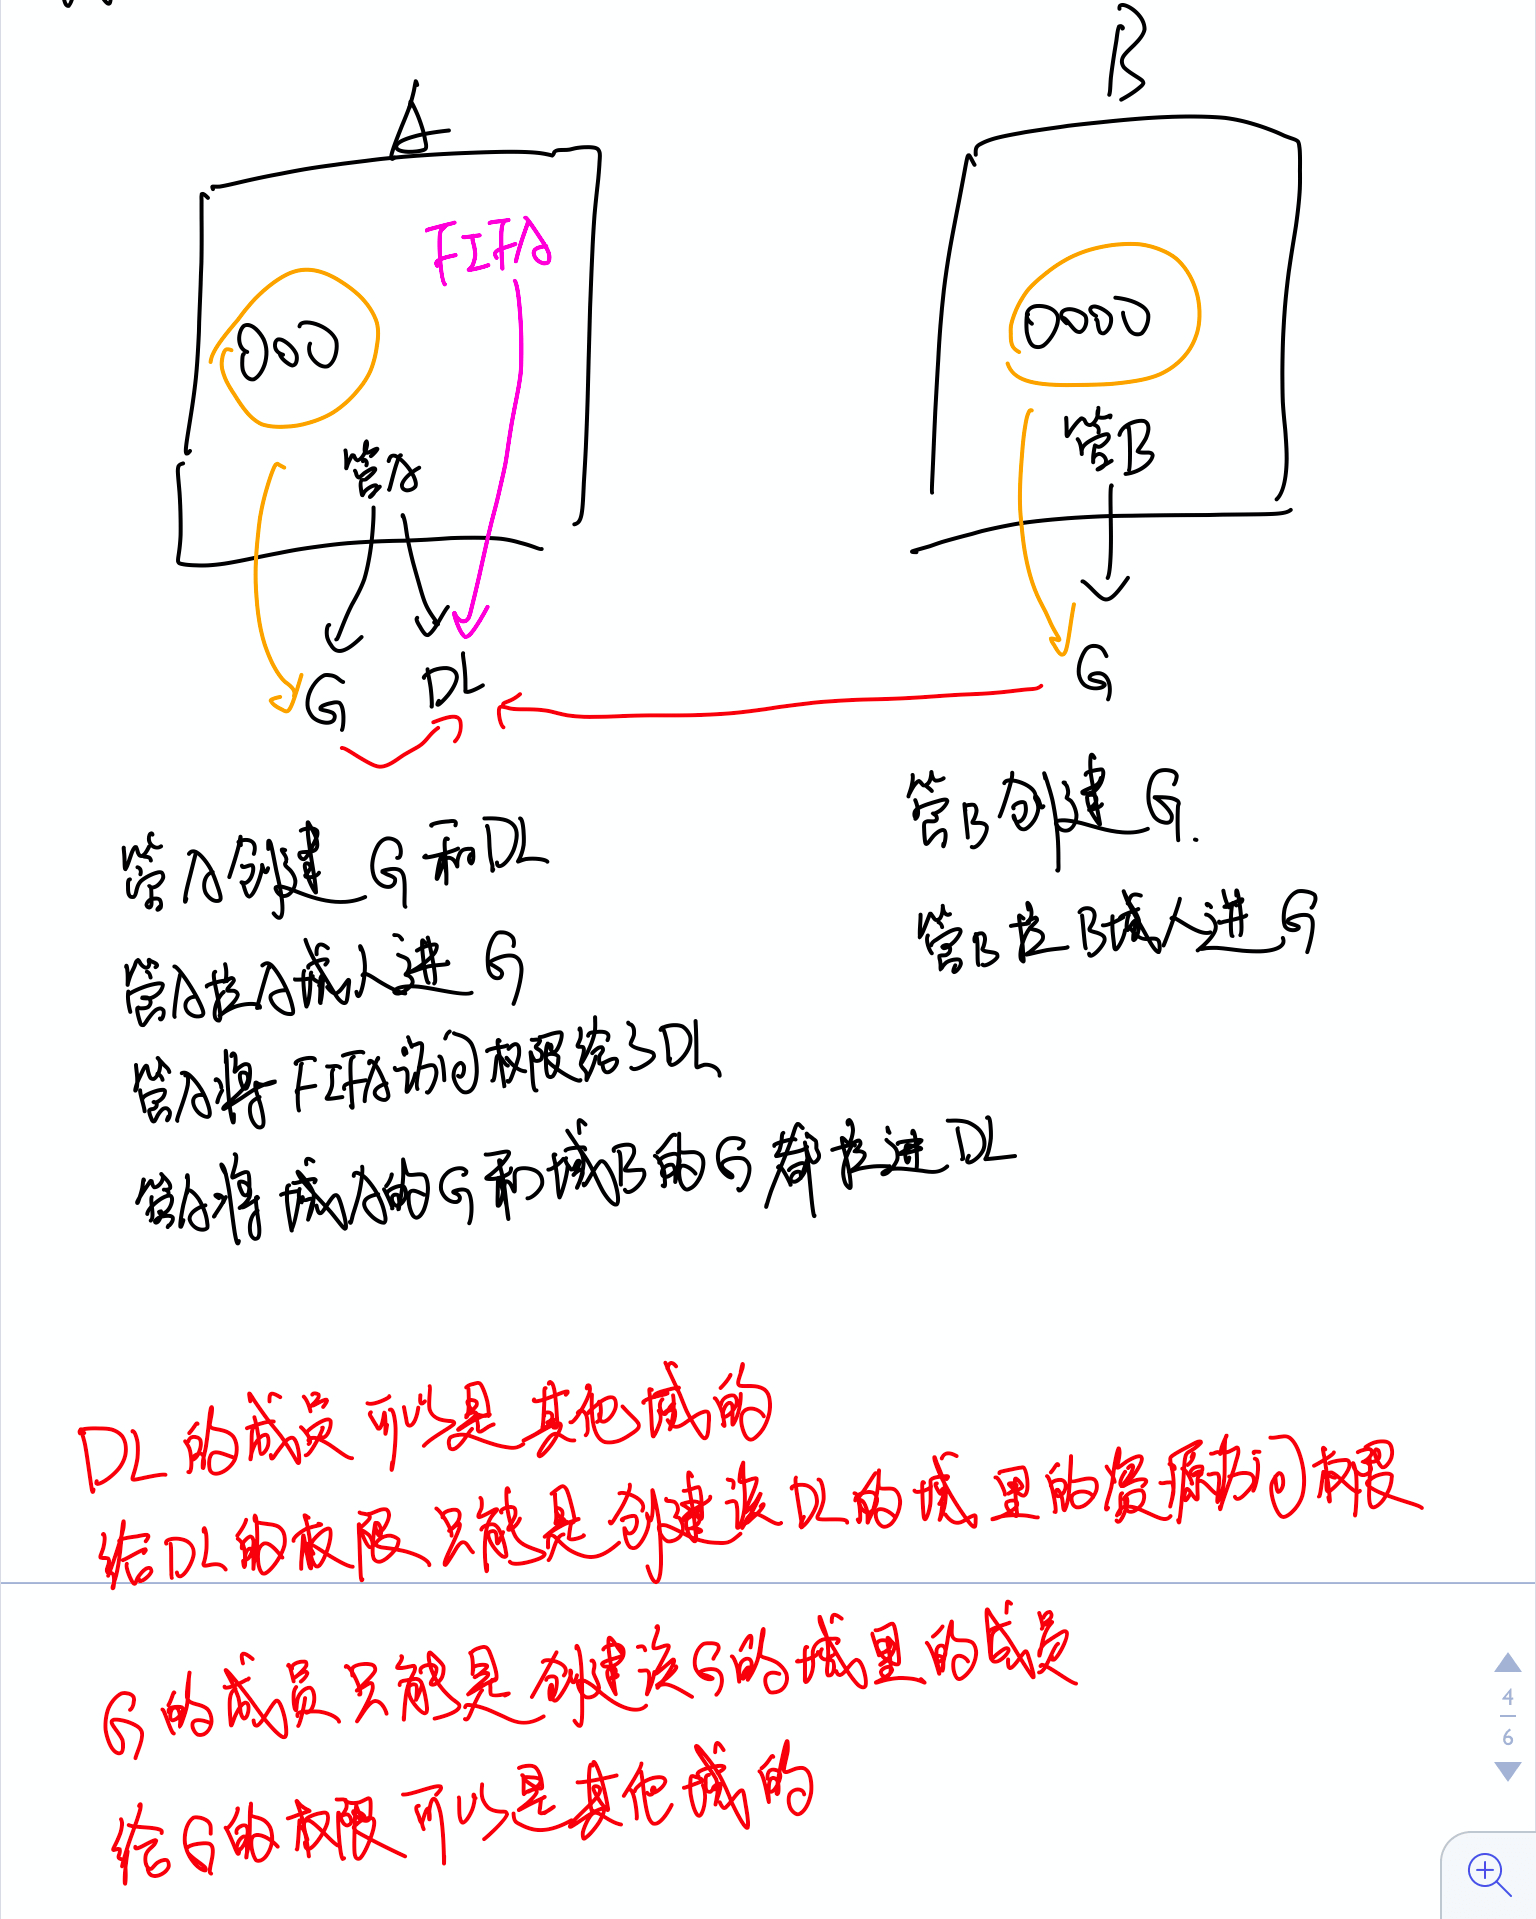 A
B
FIFA
000
0000
管A
管B
G
DL
G
管A创建G和DL
管A拉A域人进G
管A将FIFA访问权限给了DL
管A将域A的G和域B的G都拉进DL
管B创建G.
管B拉B域人进G
DL的成员可以是其他域的
给DL的权限只能是创建该DL的域里的资源访问权限
G的成员只能是创建该G的域里的成员
给G的权限可以是其他域的
4
6